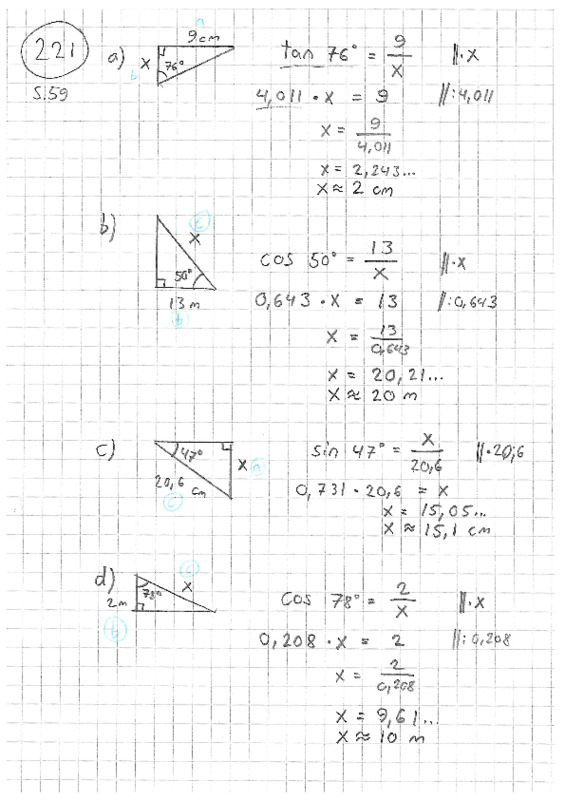 221
S.59
a)
a
9cm
x
76°
b
tan 76° = 9/x ||·x
4,011 · x = 9 ||:4,011
x = 9/4,011
x = 2,243...
x ≈ 2 cm
b)
c
x
50°
13 m
b
cos 50° = 13/x ||·x
0,643 · x = 13 ||:0,643
x = 13/0,643
x = 20,21...
x ≈ 20 m
c)
47°
x
a
20,6 cm
c
sin 47° = x/20,6 ||·20,6
0,731 · 20,6 = x
x = 15,05...
x ≈ 15,1 cm
d)
c
x
78°
2m
b
cos 78° = 2/x ||·x
0,208 · x = 2 ||:0,208
x = 2/0,208
x = 9,61...
x ≈ 10 m